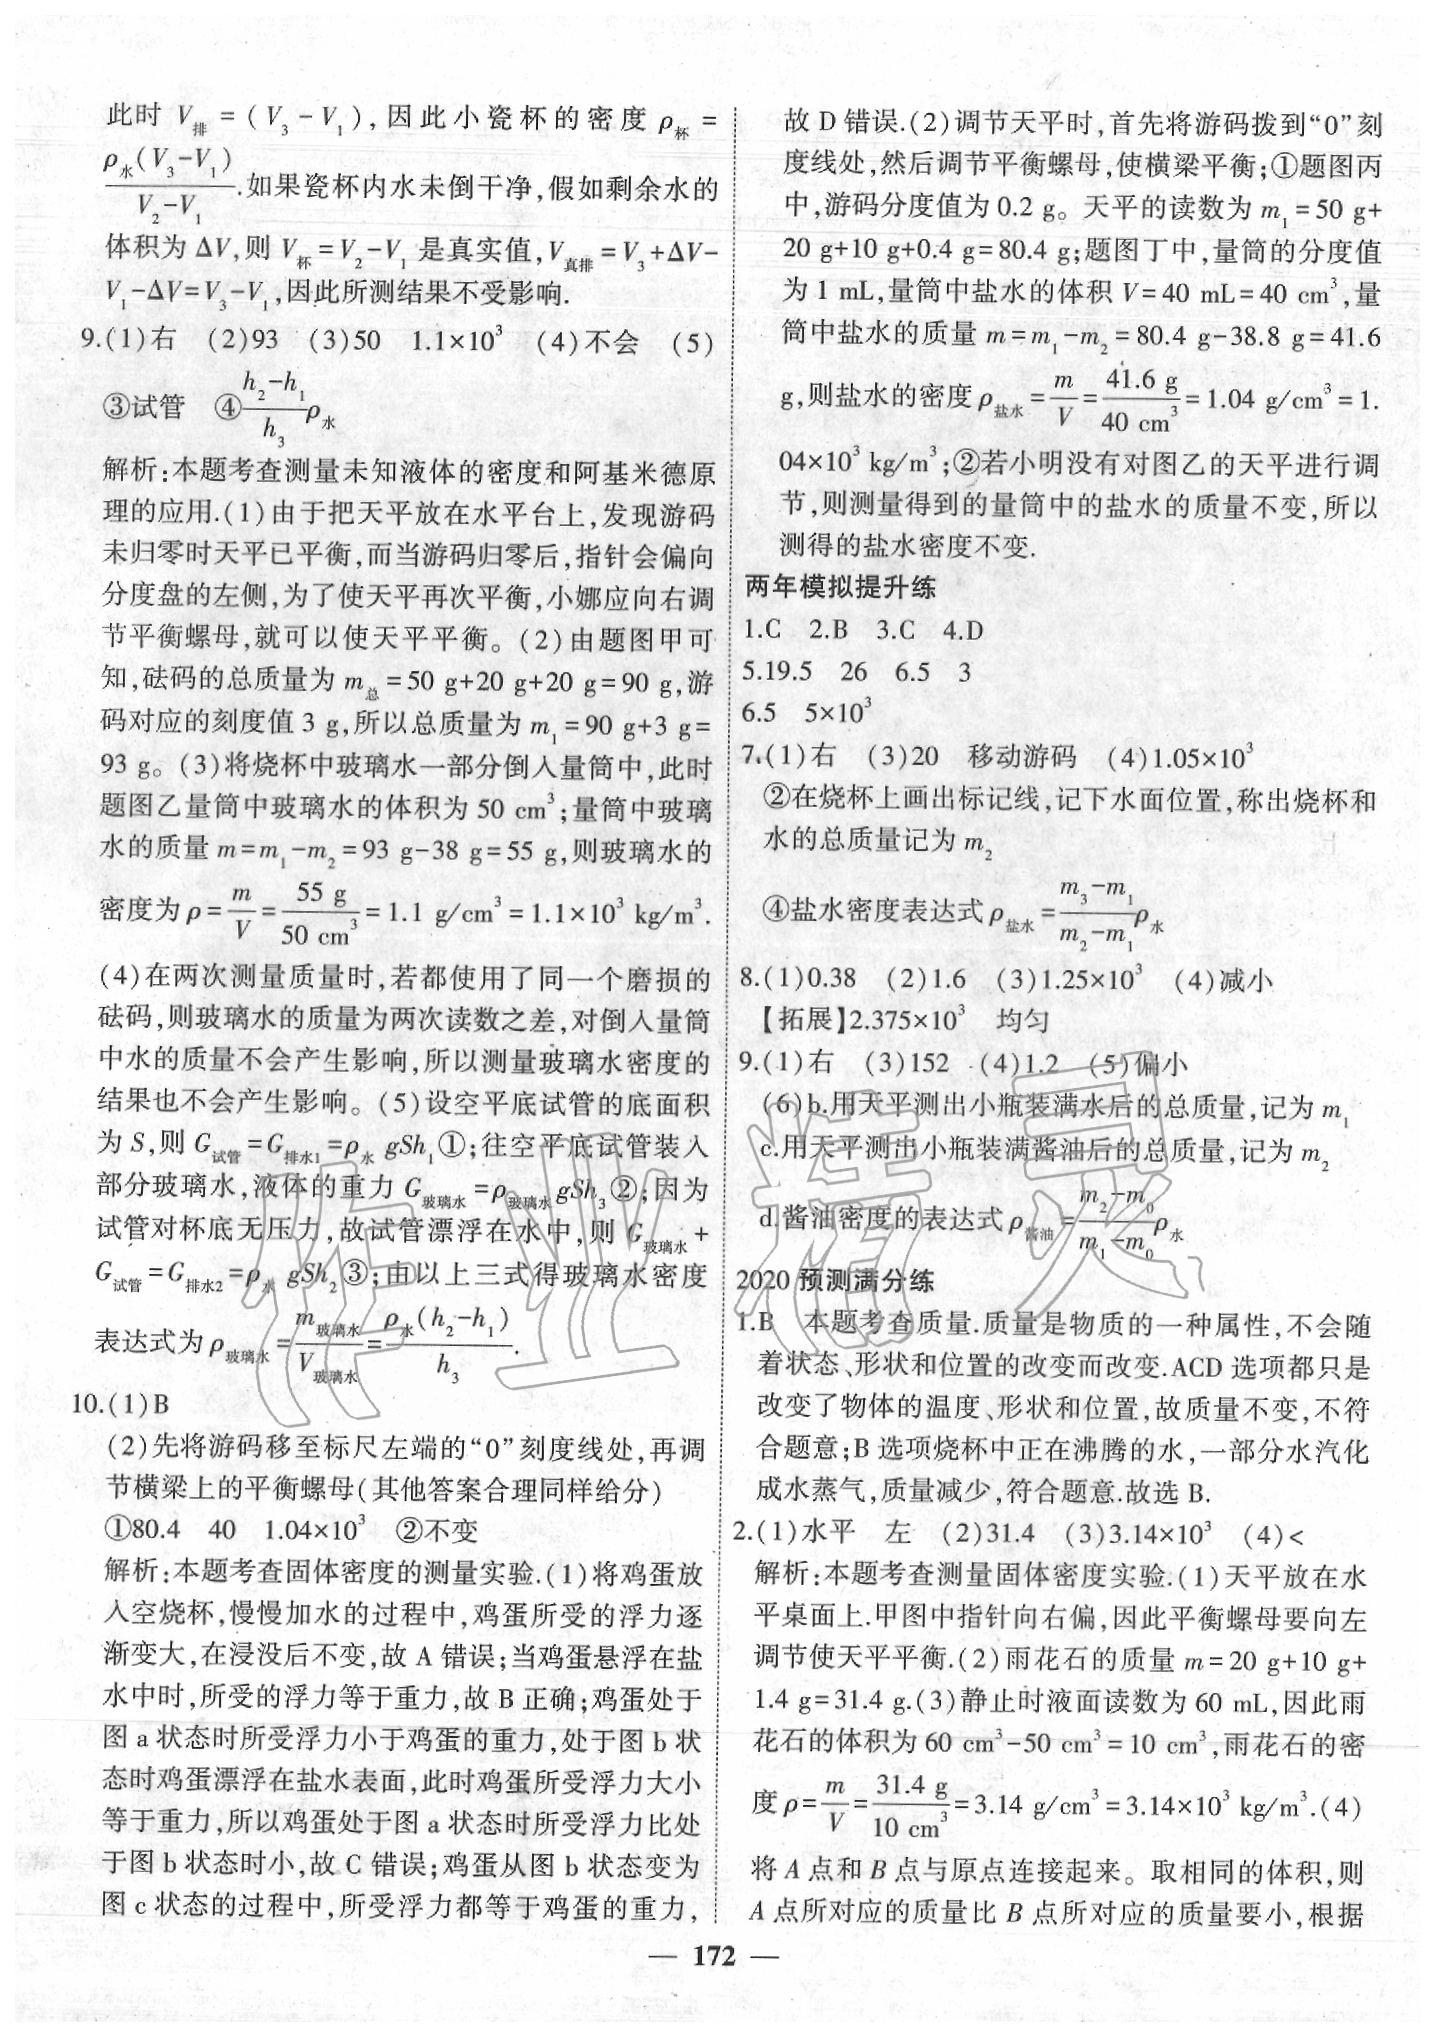 此时 V排=(V₃-V₁),因此小瓷杯的密度 ρ杯=
ρ水(V₃-V₁)/(V₂-V₁).如果瓷杯内水未倒干净,假如剩余水的
体积为 ΔV,则 V杯=V₂-V₁ 是真实值,V真排=V₃+ΔV-
V₁-ΔV=V₃-V₁,因此所测结果不受影响.
9.(1)右 (2)93 (3)50 1.1×10³ (4)不会 (5)
③试管 ④(h₂-h₁)/h₃ ρ水
解析:本题考查测量未知液体的密度和阿基米德原
理的应用.(1)由于把天平放在水平台上,发现游码
未归零时天平已平衡,而当游码归零后,指针会偏向
分度盘的左侧,为了使天平再次平衡,小娜应向右调
节平衡螺母,就可以使天平平衡。(2)由题图甲可
知,砝码的总质量为 m总=50 g+20 g+20 g=90 g,游
码对应的刻度值 3 g,所以总质量为 m₁=90 g+3 g=
93 g。(3)将烧杯中玻璃水一部分倒入量筒中,此时
题图乙量筒中玻璃水的体积为 50 cm³;量筒中玻璃
水的质量 m=m₁-m₂=93 g-38 g=55 g,则玻璃水的
密度为 ρ=m/V=55 g/50 cm³=1.1 g/cm³=1.1×10³ kg/m³.
(4)在两次测量质量时,若都使用了同一个磨损的
砝码,则玻璃水的质量为两次读数之差,对倒入量筒
中水的质量不会产生影响,所以测量玻璃水密度的
结果也不会产生影响。(5)设空平底试管的底面积
为 S,则 G试管=G排水1=ρ水 gSh₁①;往空平底试管装入
部分玻璃水,液体的重力 G玻璃水=ρ玻璃水gSh₃②;因为
试管对杯底无压力,故试管漂浮在水中,则 G玻璃水+
G试管=G排水2=ρ水 gSh₂③;由以上三式得玻璃水密度
表达式为 ρ玻璃水=m玻璃水/V玻璃水=ρ水(h₂-h₁)/h₃.
10.(1)B
(2)先将游码移至标尺左端的“0”刻度线处,再调
节横梁上的平衡螺母(其他答案合理同样给分)
①80.4 40 1.04×10³ ②不变
解析:本题考查固体密度的测量实验.(1)将鸡蛋放
入空烧杯,慢慢加水的过程中,鸡蛋所受的浮力逐
渐变大,在浸没后不变,故 A 错误;当鸡蛋悬浮在盐
水中时,所受的浮力等于重力,故 B 正确;鸡蛋处于
图 a 状态时所受浮力小于鸡蛋的重力,处于图 b 状
态时鸡蛋漂浮在盐水表面,此时鸡蛋所受浮力大小
等于重力,所以鸡蛋处于图 a 状态时所受浮力比处
于图 b 状态时小,故 C 错误;鸡蛋从图 b 状态变为
图 c 状态的过程中,所受浮力都等于鸡蛋的重力,
故 D 错误.(2)调节天平时,首先将游码拨到“0”刻
度线处,然后调节平衡螺母,使横梁平衡;①题图丙
中,游码分度值为 0.2 g。天平的读数为 m₁=50 g+
20 g+10 g+0.4 g=80.4 g;题图丁中,量筒的分度值
为 1 mL,量筒中盐水的体积 V=40 mL=40 cm³,量
筒中盐水的质量 m=m₁-m₂=80.4 g-38.8 g=41.6
g,则盐水的密度 ρ盐水=m/V=41.6 g/40 cm³=1.04 g/cm³=1.
04×10³ kg/m³;②若小明没有对图乙的天平进行调
节,则测量得到的量筒中的盐水的质量不变,所以
测得的盐水密度不变.
两年模拟提升练
1.C 2.B 3.C 4.D
5.19.5 26 6.5 3
6.5 5×10³
7.(1)右 (3)20 移动游码 (4)1.05×10³
②在烧杯上画出标记线,记下水面位置,称出烧杯和
水的总质量记为 m₂
④盐水密度表达式 ρ盐水=(m₃-m₁)/(m₂-m₁) ρ水
8.(1)0.38 (2)1.6 (3)1.25×10³ (4)减小
【拓展】2.375×10³ 均匀
9.(1)右 (3)152 (4)1.2 (5)偏小
(6)b.用天平测出小瓶装满水后的总质量,记为 m₁
c.用天平测出小瓶装满酱油后的总质量,记为 m₂
d.酱油密度的表达式 ρ酱油=(m₂-m₀)/(m₁-m₀) ρ水
2020 预测满分练
1.B 本题考查质量.质量是物质的一种属性,不会随
着状态、形状和位置的改变而改变.ACD 选项都只是
改变了物体的温度、形状和位置,故质量不变,不符
合题意;B 选项烧杯中正在沸腾的水,一部分水汽化
成水蒸气,质量减少,符合题意.故选 B.
2.(1)水平 左 (2)31.4 (3)3.14×10³ (4)<
解析:本题考查测量固体密度实验.(1)天平放在水
平桌面上.甲图中指针向右偏,因此平衡螺母要向左
调节使天平平衡.(2)雨花石的质量 m=20 g+10 g+
1.4 g=31.4 g.(3)静止时液面读数为 60 mL,因此雨
花石的体积为 60 cm³-50 cm³=10 cm³,雨花石的密
度 ρ=m/V=31.4 g/10 cm³=3.14 g/cm³=3.14×10³ kg/m³.(4)
将 A 点和 B 点与原点连接起来。取相同的体积,则
A 点所对应的质量比 B 点所对应的质量要小,根据
— 172 —
作业精灵